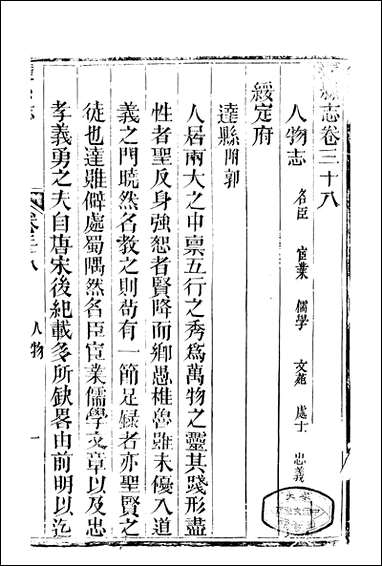 志卷三十八
人物志 名臣 宦業 儒學 文苑 處士 忠義
綏定府
達縣附郭
人居兩大之中禀五行之秀爲萬物之靈其踐形盡
性者聖反身強恕者賢降而鄉愚椎魯雖未優入道
義之門曉然名教之則苟有一節足録者亦聖賢之
徒也達雖僻處蜀隅然名臣宦業儒學文章以及忠
孝義勇之夫自唐宋後紀載多所缺畧由前明以迄
志
卷三十八
人物
一